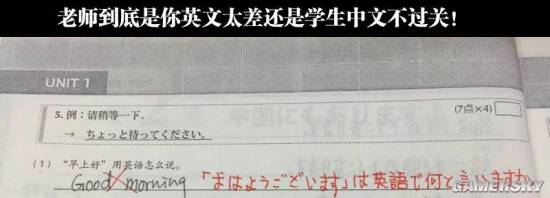 老师到底是你英文太差还是学生中文不过关！
UNIT 1
5. 例：请稍等一下。 (7点×4)
→ ちょっと待ってください。
(1) “早上好”用英语怎么说。
Good morning 「おはようございます」は英語で何と言いますか
GAMERSKY